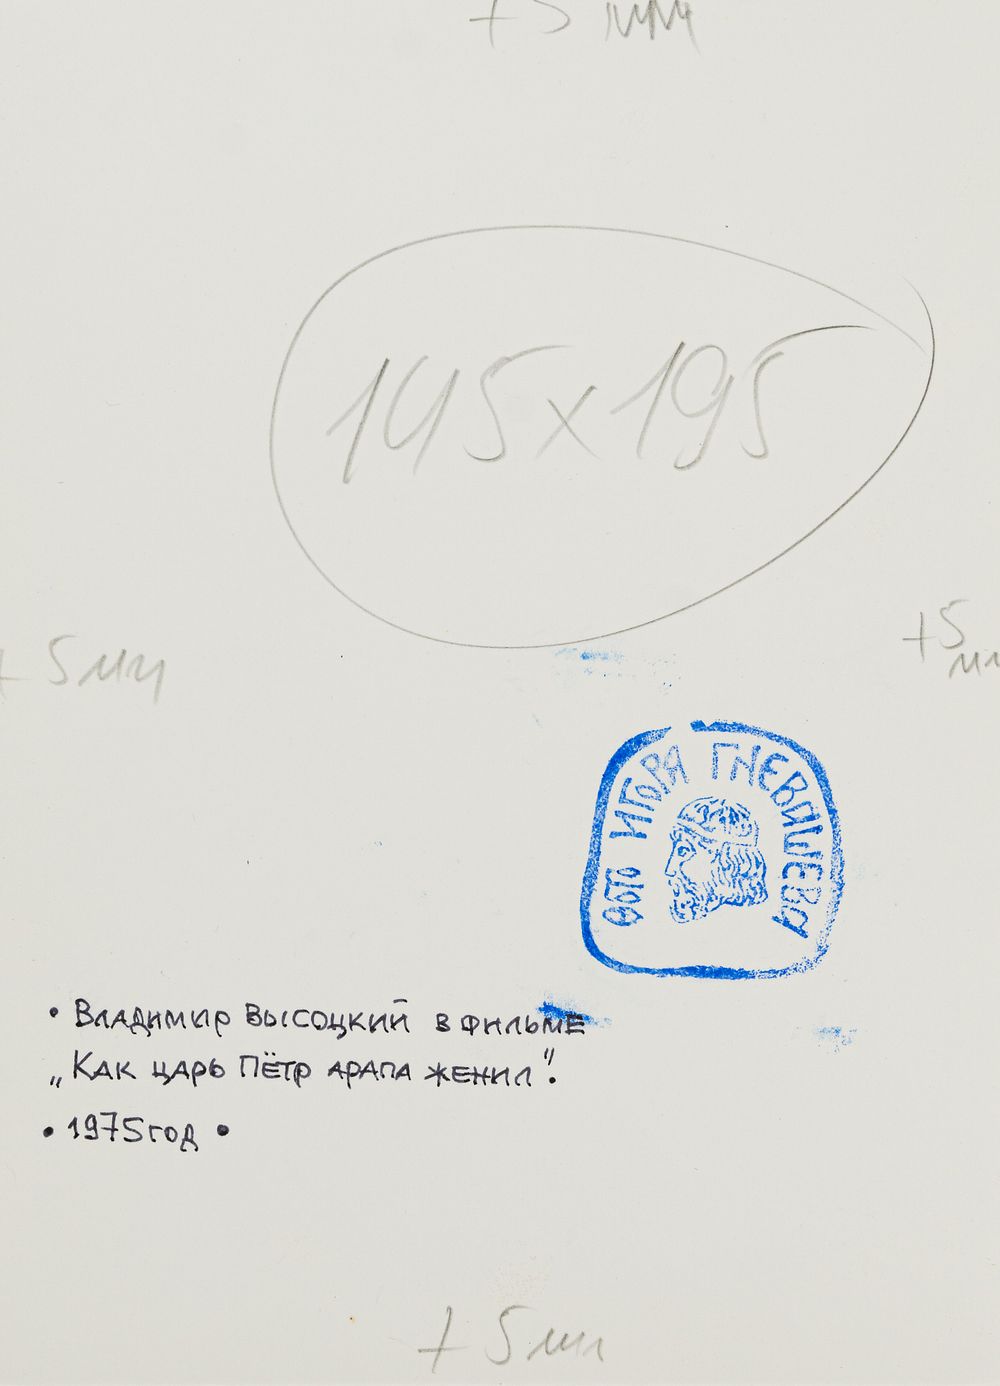 +5 мм
145x195
+5 мм
+5
мм
ФОТО ИГОРЯ ГНЕВАШЕВА
• Владимир Высоцкий в фильме
„Как царь Пётр арапа женил".
• 1975 год •
+5 мм